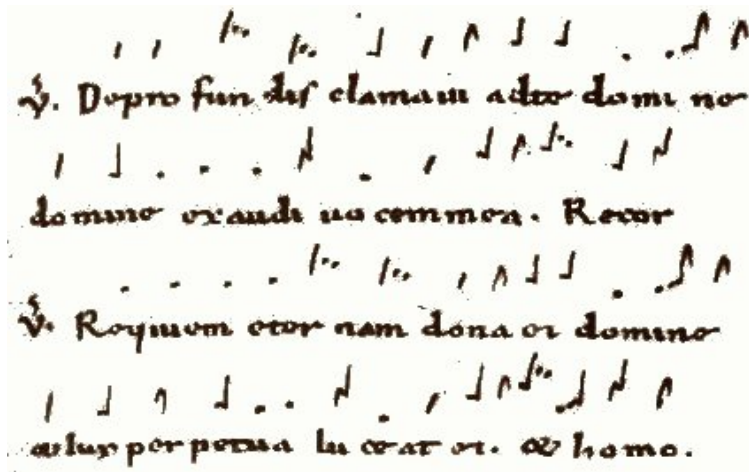 ℣. De pro fun dis clamaui ad te domi ne
domine exaudi uo cem mea. Recor
℣. Requiem eter nam dona ei domine
& lux per petua lu ceat ei. & homo.